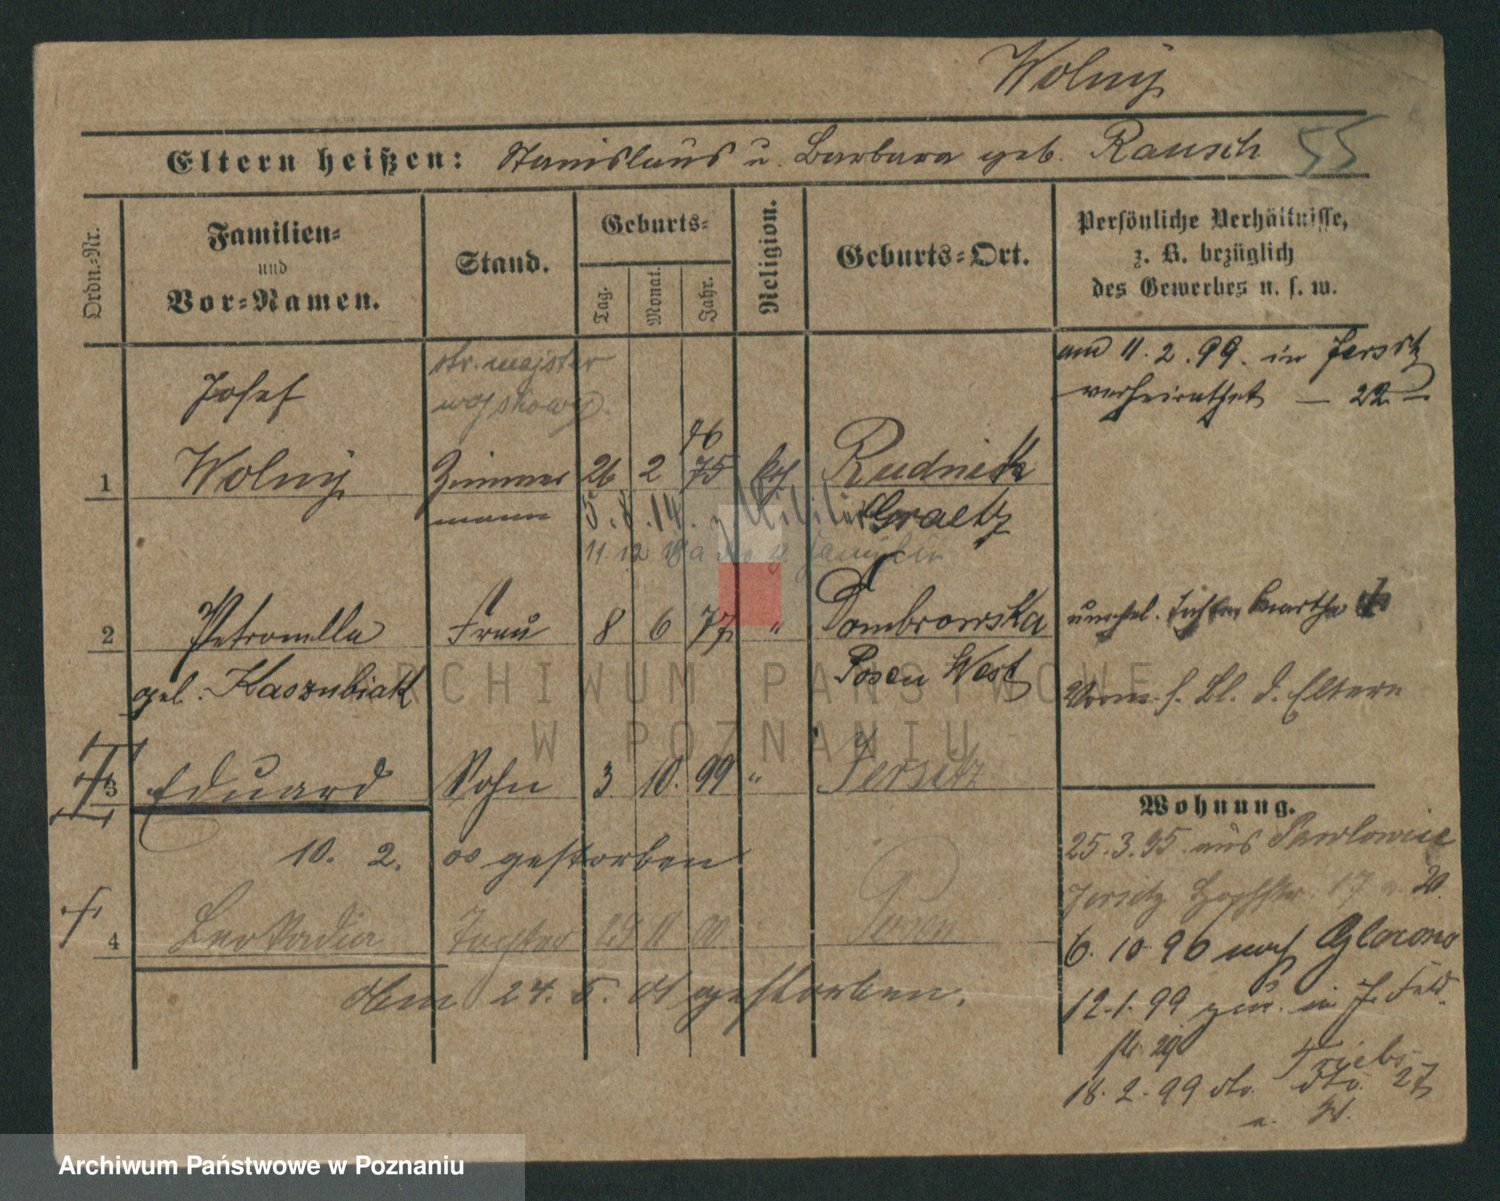 Wolny
Eltern heißen: Stanislaus u. Barbara geb. Rausch 55
Ordn.-Nr.
Familien-
und
Vor-Namen.
Stand.
Geburts-
Tag.
Monat.
Jahr.
Religion.
Geburts-Ort.
Persönliche Verhältnisse,
z. B. bezüglich
des Gewerbes u. s. w.
am 11.2.99. in Jersitz
verheirathet — 22 —
Josef
str. majster
wojskowy.
76
1 Wolny Zimmer 26 2 75 kth Rudnik
mann 5.8.14. z Militär Graetz
11.12 18
2 Petronella Frau 8 6 77 " Dombrowska unehel. Tochter Martha
geb. Kaszubiak Posen West
s. Bl. d. Eltern
3 Eduard Sohn 3 10. 99 " Jersitz
10. 2. 00 gestorben
4 Leokadia Tochter 29 11 00 Posen
Am 24. 5. 01 gestorben.
Wohnung.
25.3.95 aus Pawlowice
Jersitz 17 a. 20.
6.10.96 nach Glowno
12.1.99 zur. in J. Feld
str. 29
18.2.99 dto. Triebs
dto. 27
Archiwum Państwowe w Poznaniu
ARCHIWUM PAŃSTWOWE
W POZNANIU